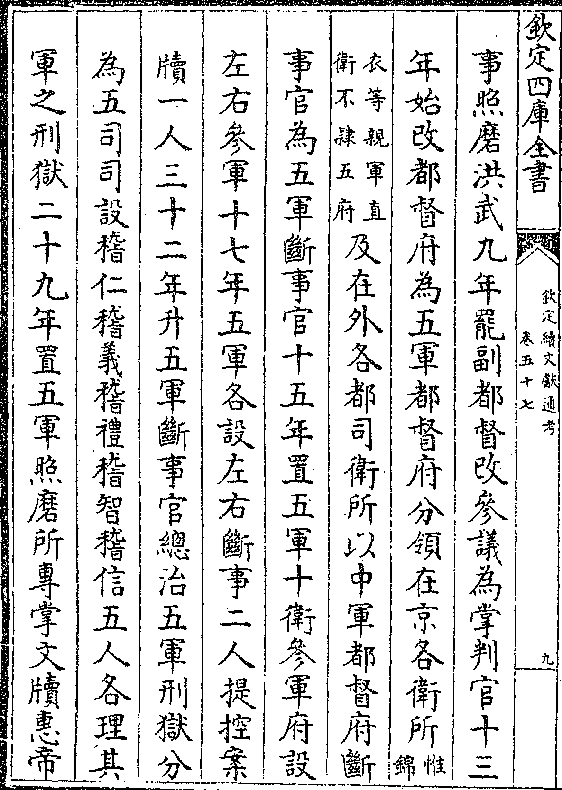 欽定四庫全書
欽定續文獻通考
卷五十七
九
事照磨洪武九年罷副都督改參議為掌判官十三
年始改都督府為五軍都督府分領在京各衛所惟錦
衣等親軍直
衛不隸五府
及在外各都司衛所以中軍都督府斷
事官為五軍斷事官十五年置五軍十衛參軍府設
左右參軍十七年五軍各設左右斷事二人提控案
牘一人三十二年升五軍斷事官總治五軍刑獄分
為五司司設稽仁稽義稽禮稽智稽信五人各理其
軍之刑獄二十九年置五軍照磨所專掌文牘惠帝